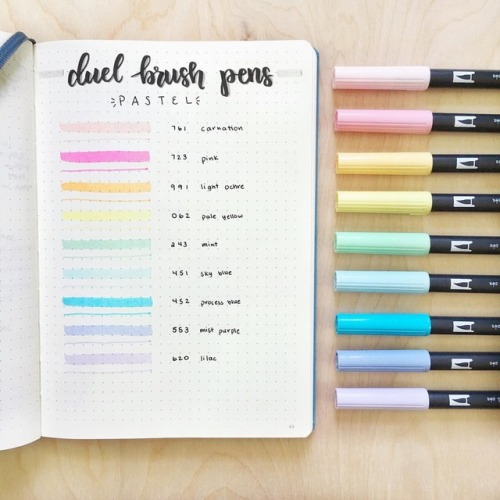 duel brush pens
PASTEL
761 carnation
723 pink
991 light ochre
062 pale yellow
243 mint
451 sky blue
452 process blue
553 mist purple
620 lilac